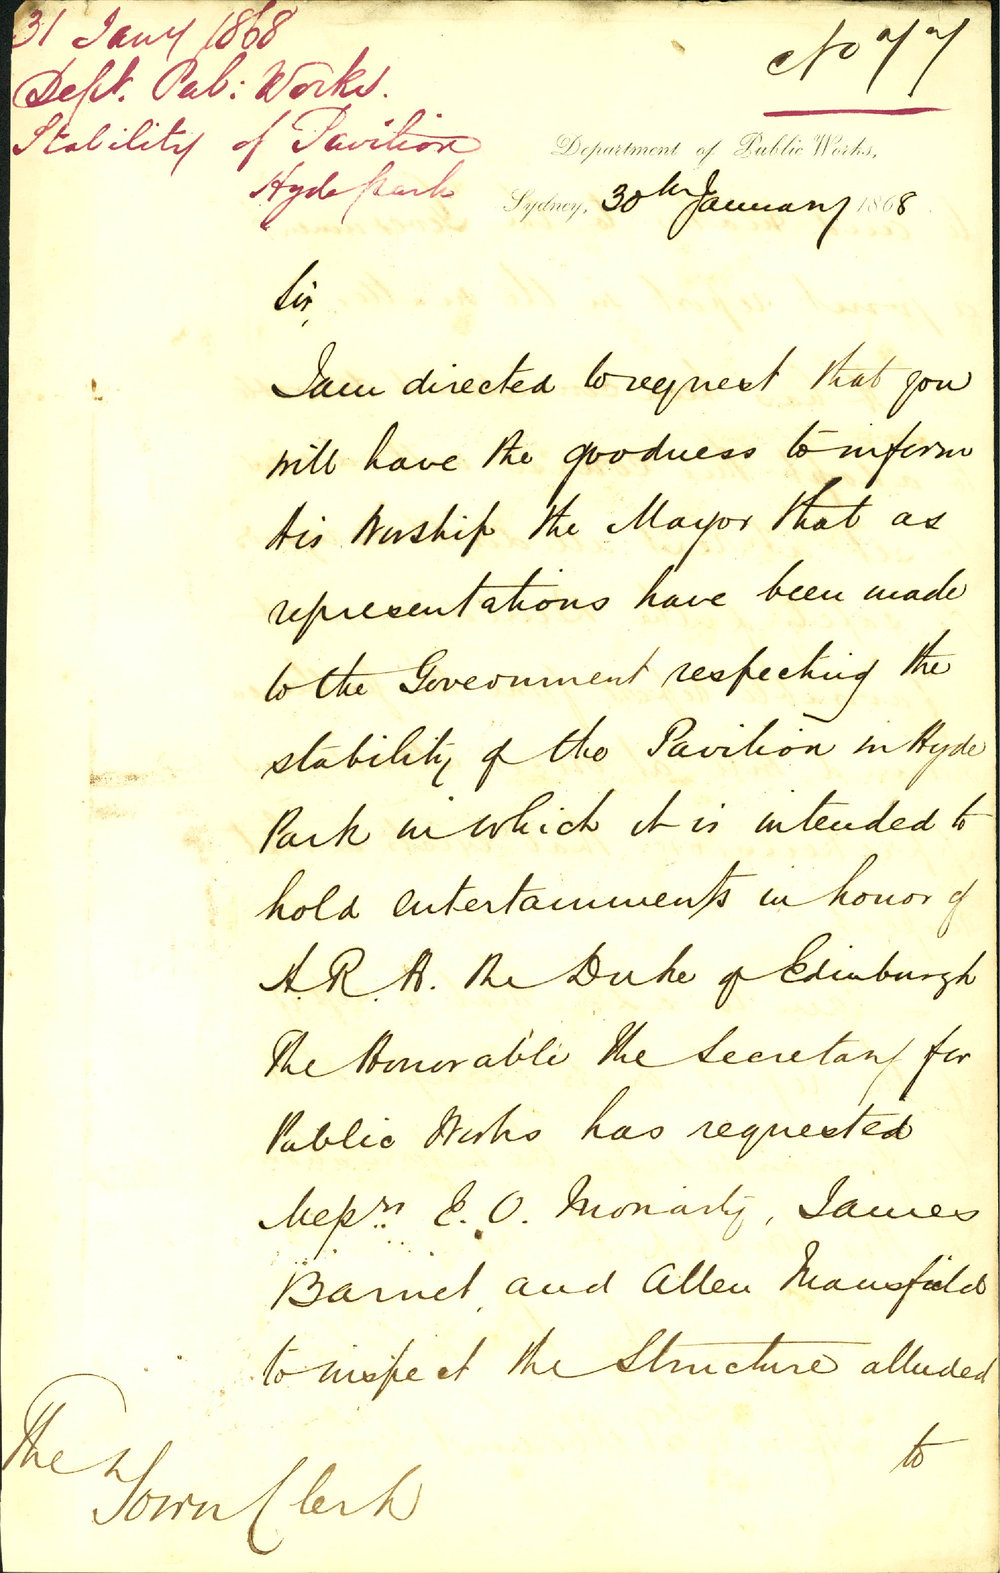 31 Jany 1868
Dept. Pub: Works.
Stability of Pavilion
Hyde Park
No 77
Department of Public Works,
Sydney, 30th January 1868
Sir,
I am directed to request that you
will have the goodness to inform
His Worship the Mayor that as
representations have been made
to the Government respecting the
stability of the Pavilion in Hyde
Park in which it is intended to
hold entertainments in honor of
H.R.H. the Duke of Edinburgh
The Honorable the Secretary for
Public Works has requested
Messrs E. O. Moriarty, James
Barnet, and Allen Mansfield
to inspect the Structure alluded
to
The
Town Clerk